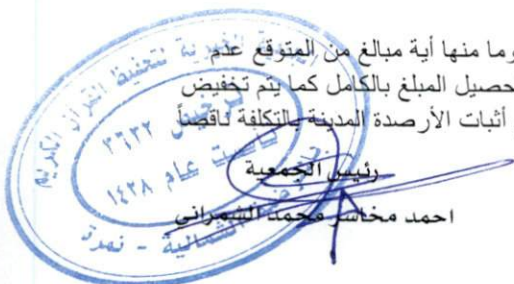 وما منها أية مبالغ من المتوقع عدم
حصيل المبلغ بالكامل كما يتم تخفيض
أثبات الأرصدة المدينة بالتكلفة ناقصاً
رئيس الجمعية
احمد مخاسر محمد الشمراني
الخيرية لتحفيظ القرآن الكريم
ترخيص ٣٦٣٢
تأسست عام ١٤٣٨
الشمالية - نمرة